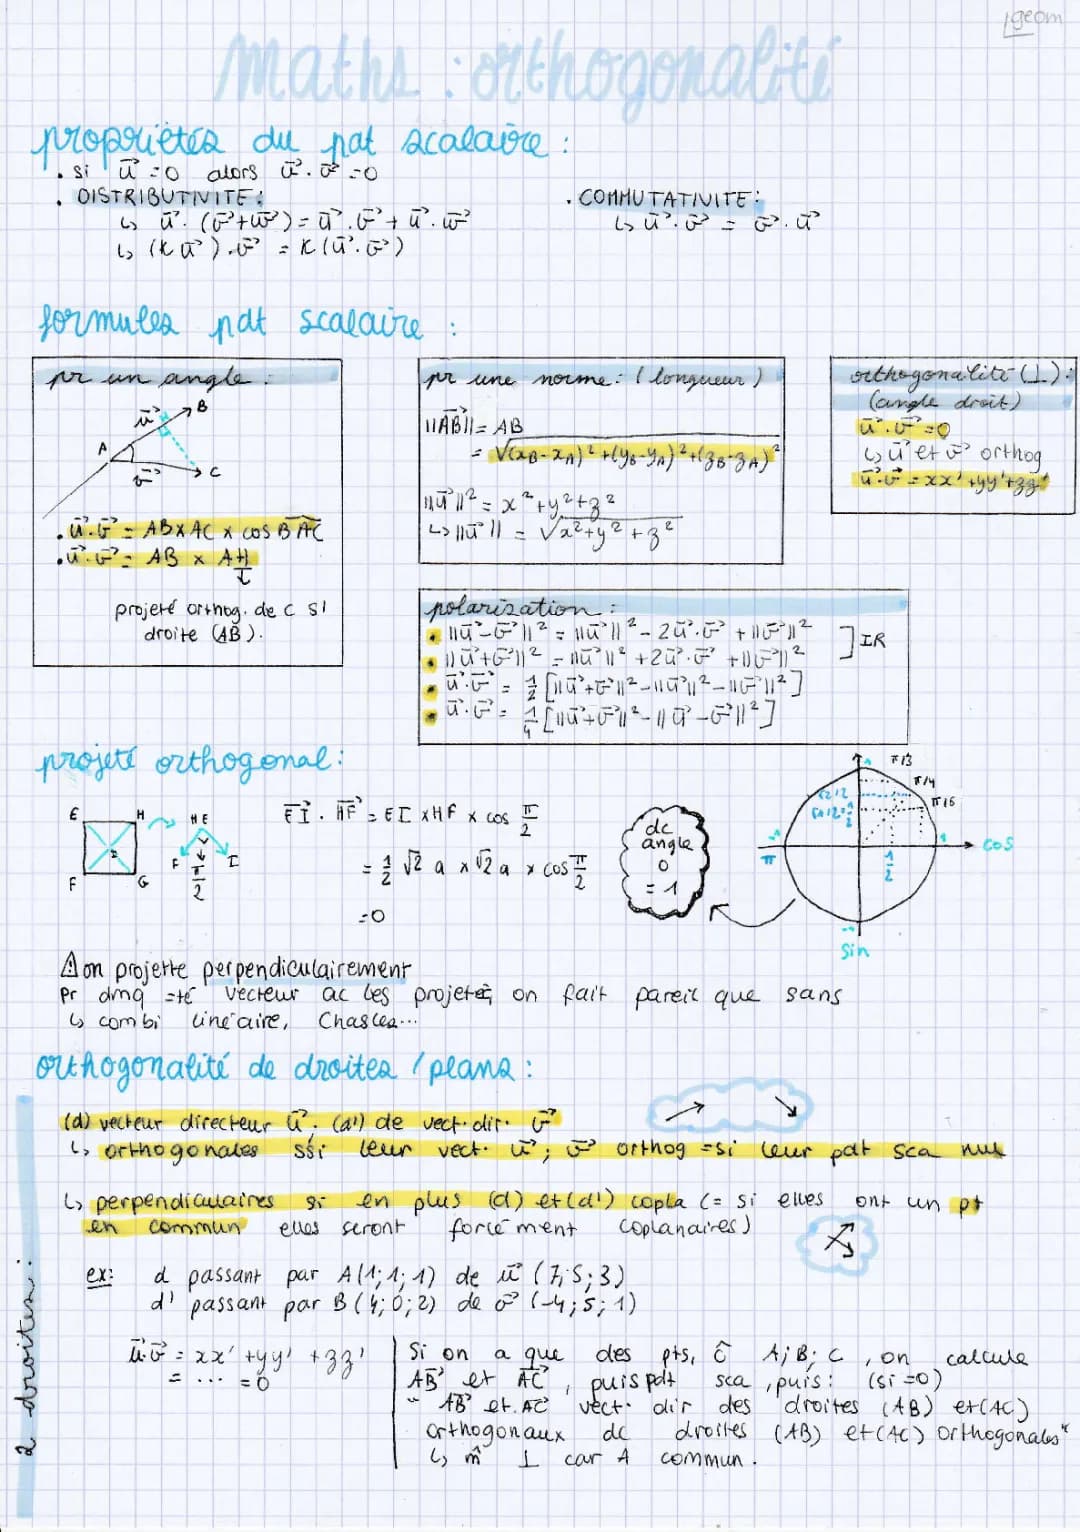 geom
Maths : orthogonalité
propriétés du pdt scalaire :
. si u⃗ = 0 alors u⃗ . v⃗ = 0
. DISTRIBUTIVITE :
↳ u⃗ . (v⃗ + w⃗) = u⃗ . v⃗ + u⃗ . w⃗
↳ (k u⃗) . v⃗ = k (u⃗ . v⃗)
. COMMUTATIVITE :
↳ u⃗ . v⃗ = v⃗ . u⃗
formules pdt scalaire :
pr un angle :
u⃗ B
A
v⃗ C
. u⃗ . v⃗ = AB x AC x cos BAC
. u⃗ . v⃗ = AB x AH
projeté orthog. de C s/
droite (AB).
pr une norme : (longueur)
||AB⃗|| = AB
= √(xB - xA)² + (yB - yA)² + (zB - zA)²
||u⃗||² = x² + y² + z²
↳ ||u⃗|| = √x² + y² + z²
orthogonalité (⊥) :
(angle droit)
u⃗ . v⃗ = 0
↳ u⃗ et v⃗ orthog
u⃗ . v⃗ = xx' + yy' + zz'
polarisation :
. ||u⃗ - v⃗||² = ||u⃗||² - 2u⃗ . v⃗ + ||v⃗||² ] IR
. ||u⃗ + v⃗||² = ||u⃗||² + 2u⃗ . v⃗ + ||v⃗||²
. u⃗ . v⃗ = 1/2 [||u⃗ + v⃗||² - ||u⃗||² - ||v⃗||²]
. u⃗ . v⃗ = 1/4 [||u⃗ + v⃗||² - ||u⃗ - v⃗||²]
projeté orthogonal :
E H
I
F G
H E
F I
π/2
EI⃗ . HF⃗ = EI x HF x cos π/2
= 1/2 √2 a x √2 a x cos π/2
= 0
dc
angle
0
= 1
1 π/3
π/4
π/6
√2/2
1/2
-1 1 cos
π 1/2
-1
sin
⚠ on projette perpendiculairement
Pr dmq =té vecteur ac les projetés, on fait pareil que sans
↳ combi linéaire, Chasles...
orthogonalité de droites / plans :
2 droites :
(d) vecteur directeur u⃗ . (d') de vect. dir. v⃗
↳ orthogonales ssi leur vect. u⃗ ; v⃗ orthog = si leur pdt sca nul
↳ perpendiculaires si en plus (d) et (d') copla (= si elles ont un pt
en commun elles seront forcément coplanaires)
ex: d passant par A(1; 1; 1) de u⃗ (7; 5; 3)
d' passant par B(4; 0; 2) de v⃗ (-4; 5; 1)
u⃗ . v⃗ = xx' + yy' + zz'
= ... = 0
Si on a que des pts, ĉ A; B; C, on calcule
AB⃗ et AC⃗, puis pdt sca, puis : (si = 0)
" AB⃗ et AC⃗ vect. dir des droites (AB) et (AC)
orthogonaux dc droites (AB) et (AC) orthogonales "
↳ m̂ ⊥ car A commun.